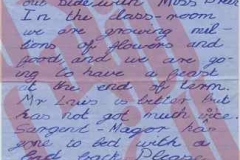 out side with Moss Bree
In the class-room
we are growing nut-
tions of flowers and
food, and we are go-
ing to have a feast
at the end of term.
Mr Lewis is better but
has not got much voice.
Sargent-Magor has
gone to bed with a
bad back. Please